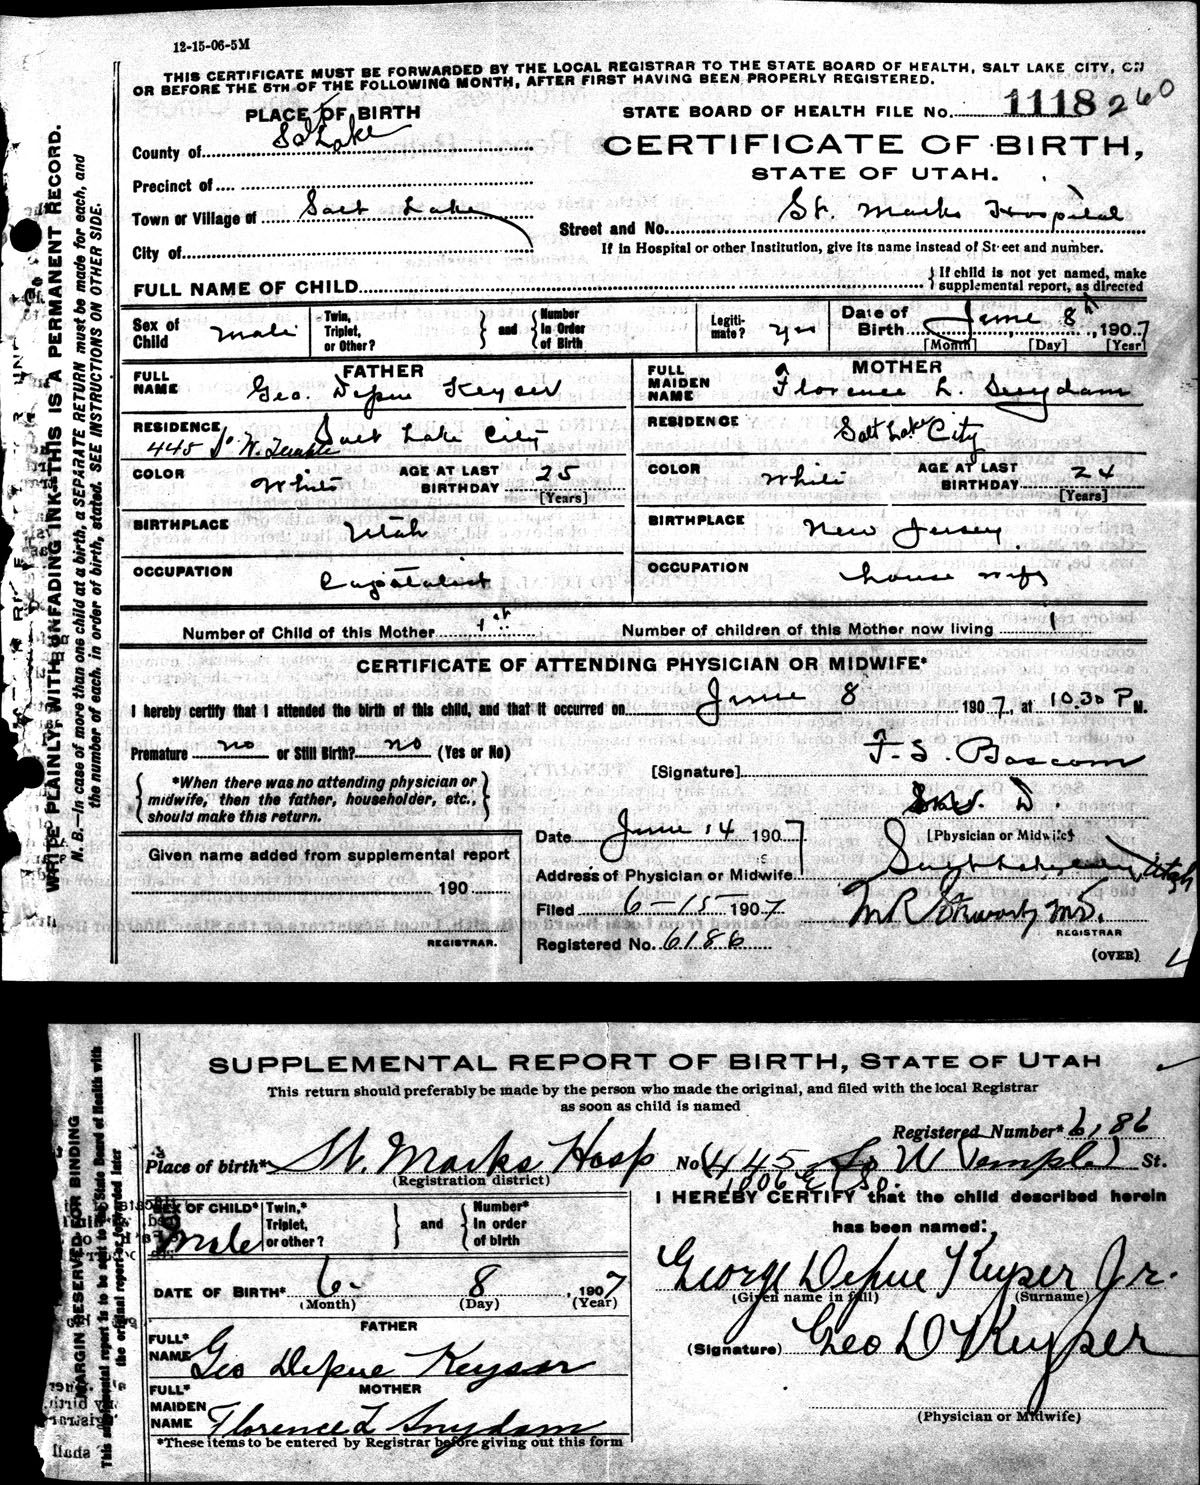 12-15-06-5M
THIS CERTIFICATE MUST BE FORWARDED BY THE LOCAL REGISTRAR TO THE STATE BOARD OF HEALTH, SALT LAKE CITY, ON
OR BEFORE THE 5TH OF THE FOLLOWING MONTH, AFTER FIRST HAVING BEEN PROPERLY REGISTERED.
PLACE OF BIRTH
STATE BOARD OF HEALTH FILE NO. 1118 260
County of Salt Lake
CERTIFICATE OF BIRTH,
STATE OF UTAH.
Precinct of
Town or Village of Salt Lake
Street and No. St. Marks Hospital
City of
If in Hospital or other Institution, give its name instead of Street and number.
FULL NAME OF CHILD
If child is not yet named, make
supplemental report, as directed
Sex of Child male
Twin, Triplet, or Other?
and
Number In Order of Birth
Legitimate? yes
Date of Birth June 8th, 1907
[Month] [Day] [Year]
FATHER
FULL NAME Geo. Depue Keyser
RESIDENCE 445 So. W. Temple Salt Lake City
COLOR White
AGE AT LAST BIRTHDAY 25
[Years]
BIRTHPLACE Utah
OCCUPATION Capitalist
MOTHER
FULL MAIDEN NAME Florence L.
RESIDENCE Salt Lake City
COLOR White
AGE AT LAST BIRTHDAY 24
[Years]
BIRTHPLACE New Jersey
OCCUPATION house wife
Number of Child of this Mother 1st
Number of children of this Mother now living 1
CERTIFICATE OF ATTENDING PHYSICIAN OR MIDWIFE*
I hereby certify that I attended the birth of this child, and that it occurred on June 8 1907, at 10.30 P M.
Premature no or Still Birth? no (Yes or No)
*When there was no attending physician or
midwife, then the father, householder, etc.,
should make this return.
[Signature] F. S. Bascom
Date June 14 1907
[Physician or Midwife]
Given name added from supplemental report
190
REGISTRAR.
Address of Physician or Midwife. Utah
Filed 6-15 1907
REGISTRAR
Registered No. 6186
(OVER)
WRITE PLAINLY, WITH UNFADING INK—THIS IS A PERMANENT RECORD.
N. B.—In case of more than one child at a birth, a SEPARATE RETURN must be made for each, and
the number of each, in order of birth, stated. SEE INSTRUCTIONS ON OTHER SIDE.
SUPPLEMENTAL REPORT OF BIRTH, STATE OF UTAH
This return should preferably be made by the person who made the original, and filed with the local Registrar
as soon as child is named
Registered Number* 6186
Place of birth* St. Marks Hosp No 445 So W Temple St.
(Registration district)
1006 E 1 So.
SEX OF CHILD* Male
Twin,* Triplet, or other?
and
Number* In order of birth
I HEREBY CERTIFY that the child described herein
has been named:
DATE OF BIRTH* 6- 8, 1907
(Month) (Day) (Year)
George Depue Keyser Jr.
(Given name in full) (Surname)
FATHER
FULL* NAME Geo Depue Keyser
(Signature) Geo D Keyser
MOTHER
FULL* MAIDEN NAME Florence L
(Physician or Midwife)
*These items to be entered by Registrar before giving out this form
MARGIN RESERVED FOR BINDING
This supplemental report is to be sent to the State Board of Health with
the original report or forwarded later